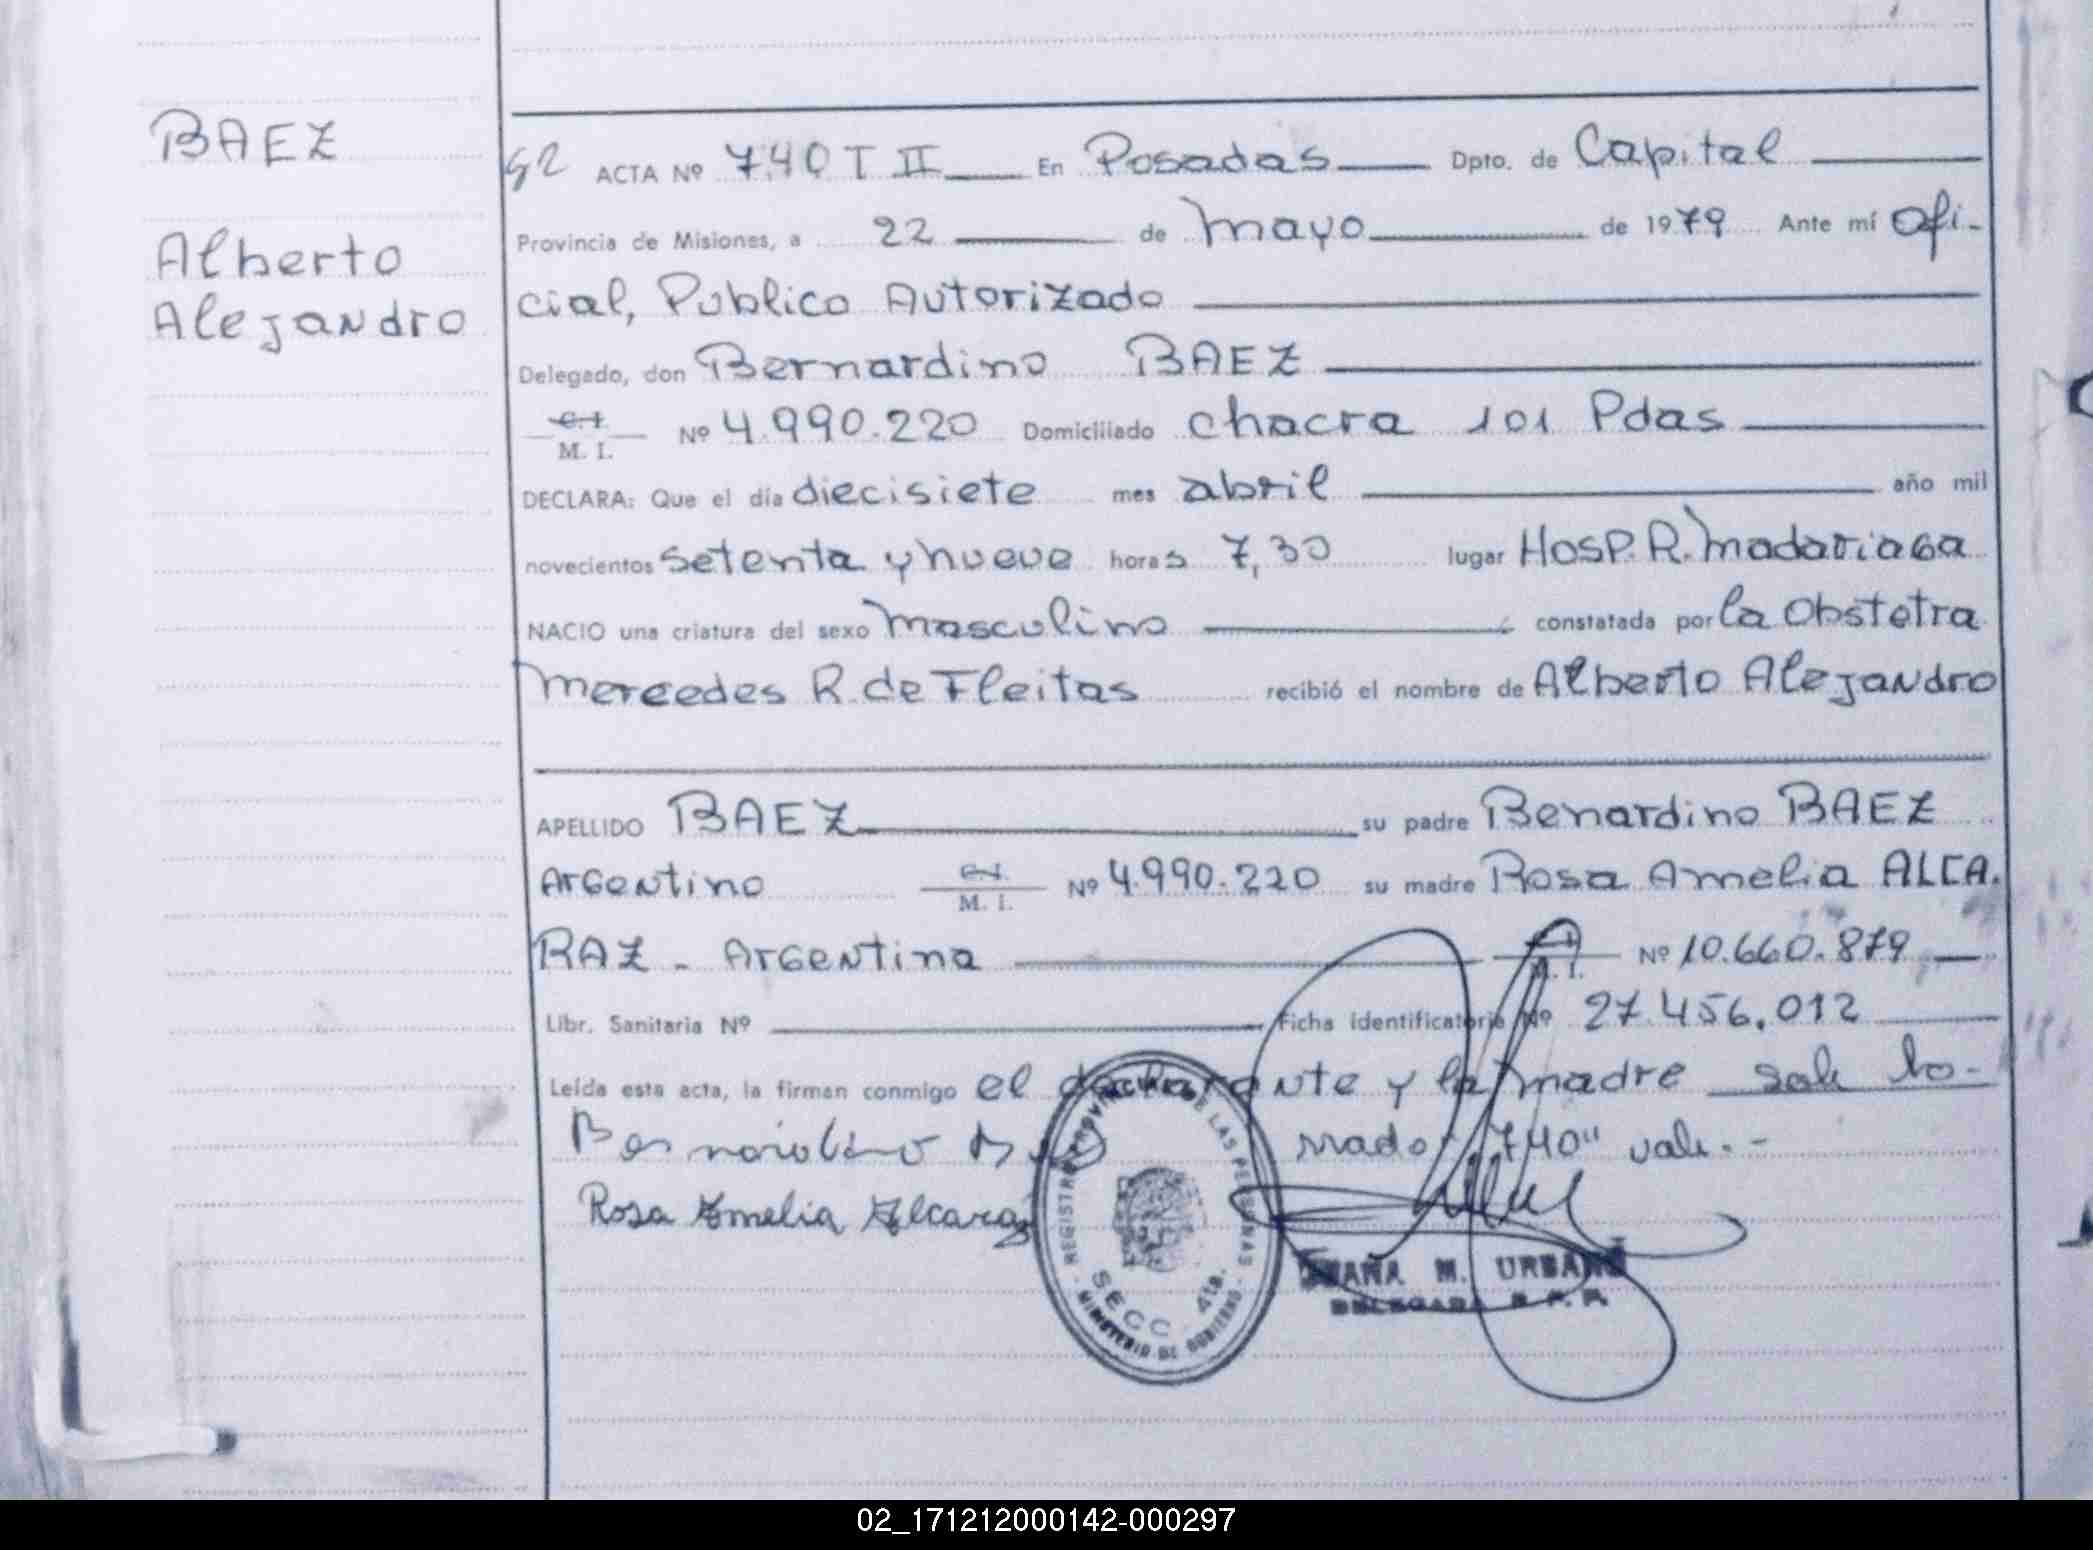 BAEZ
Alberto
Alejandro
92 ACTA Nº 740 T II En Posadas Dpto. de Capital
Provincia de Misiones, a 22 de mayo de 1979 Ante mí Ofi-
cial, Publico Autorizado
Delegado, don Bernardino BAEZ
C.I. M. I. Nº 4.990.220 Domiciliado chacra 101 Pdas
DECLARA: Que el día diecisiete mes abril año mil
novecientos setenta y nueve horas 7,30 lugar HOSP. R. Madariaga
NACIO una criatura del sexo masculino constatada por la Obstetra
Mercedes R. de Fleitas recibió el nombre de Alberto Alejandro
APELLIDO BAEZ su padre Benardino BAEZ
Argentino C.I. M. I. Nº 4.990.220 su madre Rosa Amelia ALCA.
RAZ - Argentina M. I. Nº 10.660.879
Libr. Sanitaria Nº Ficha identificatoria Nº 27.456.012
Leída esta acta, la firman conmigo el declarante y la madre sobre bo-
Bernardino rrado: "740" vale.-
Rosa Amelia Alcaraz
REGISTRO PROVINCIAL DE LAS PERSONAS
SECC 4ta.
MINISTERIO DE GOBIERNO
M. URBANO
DELEGADA R. P. P.
02_171212000142-000297